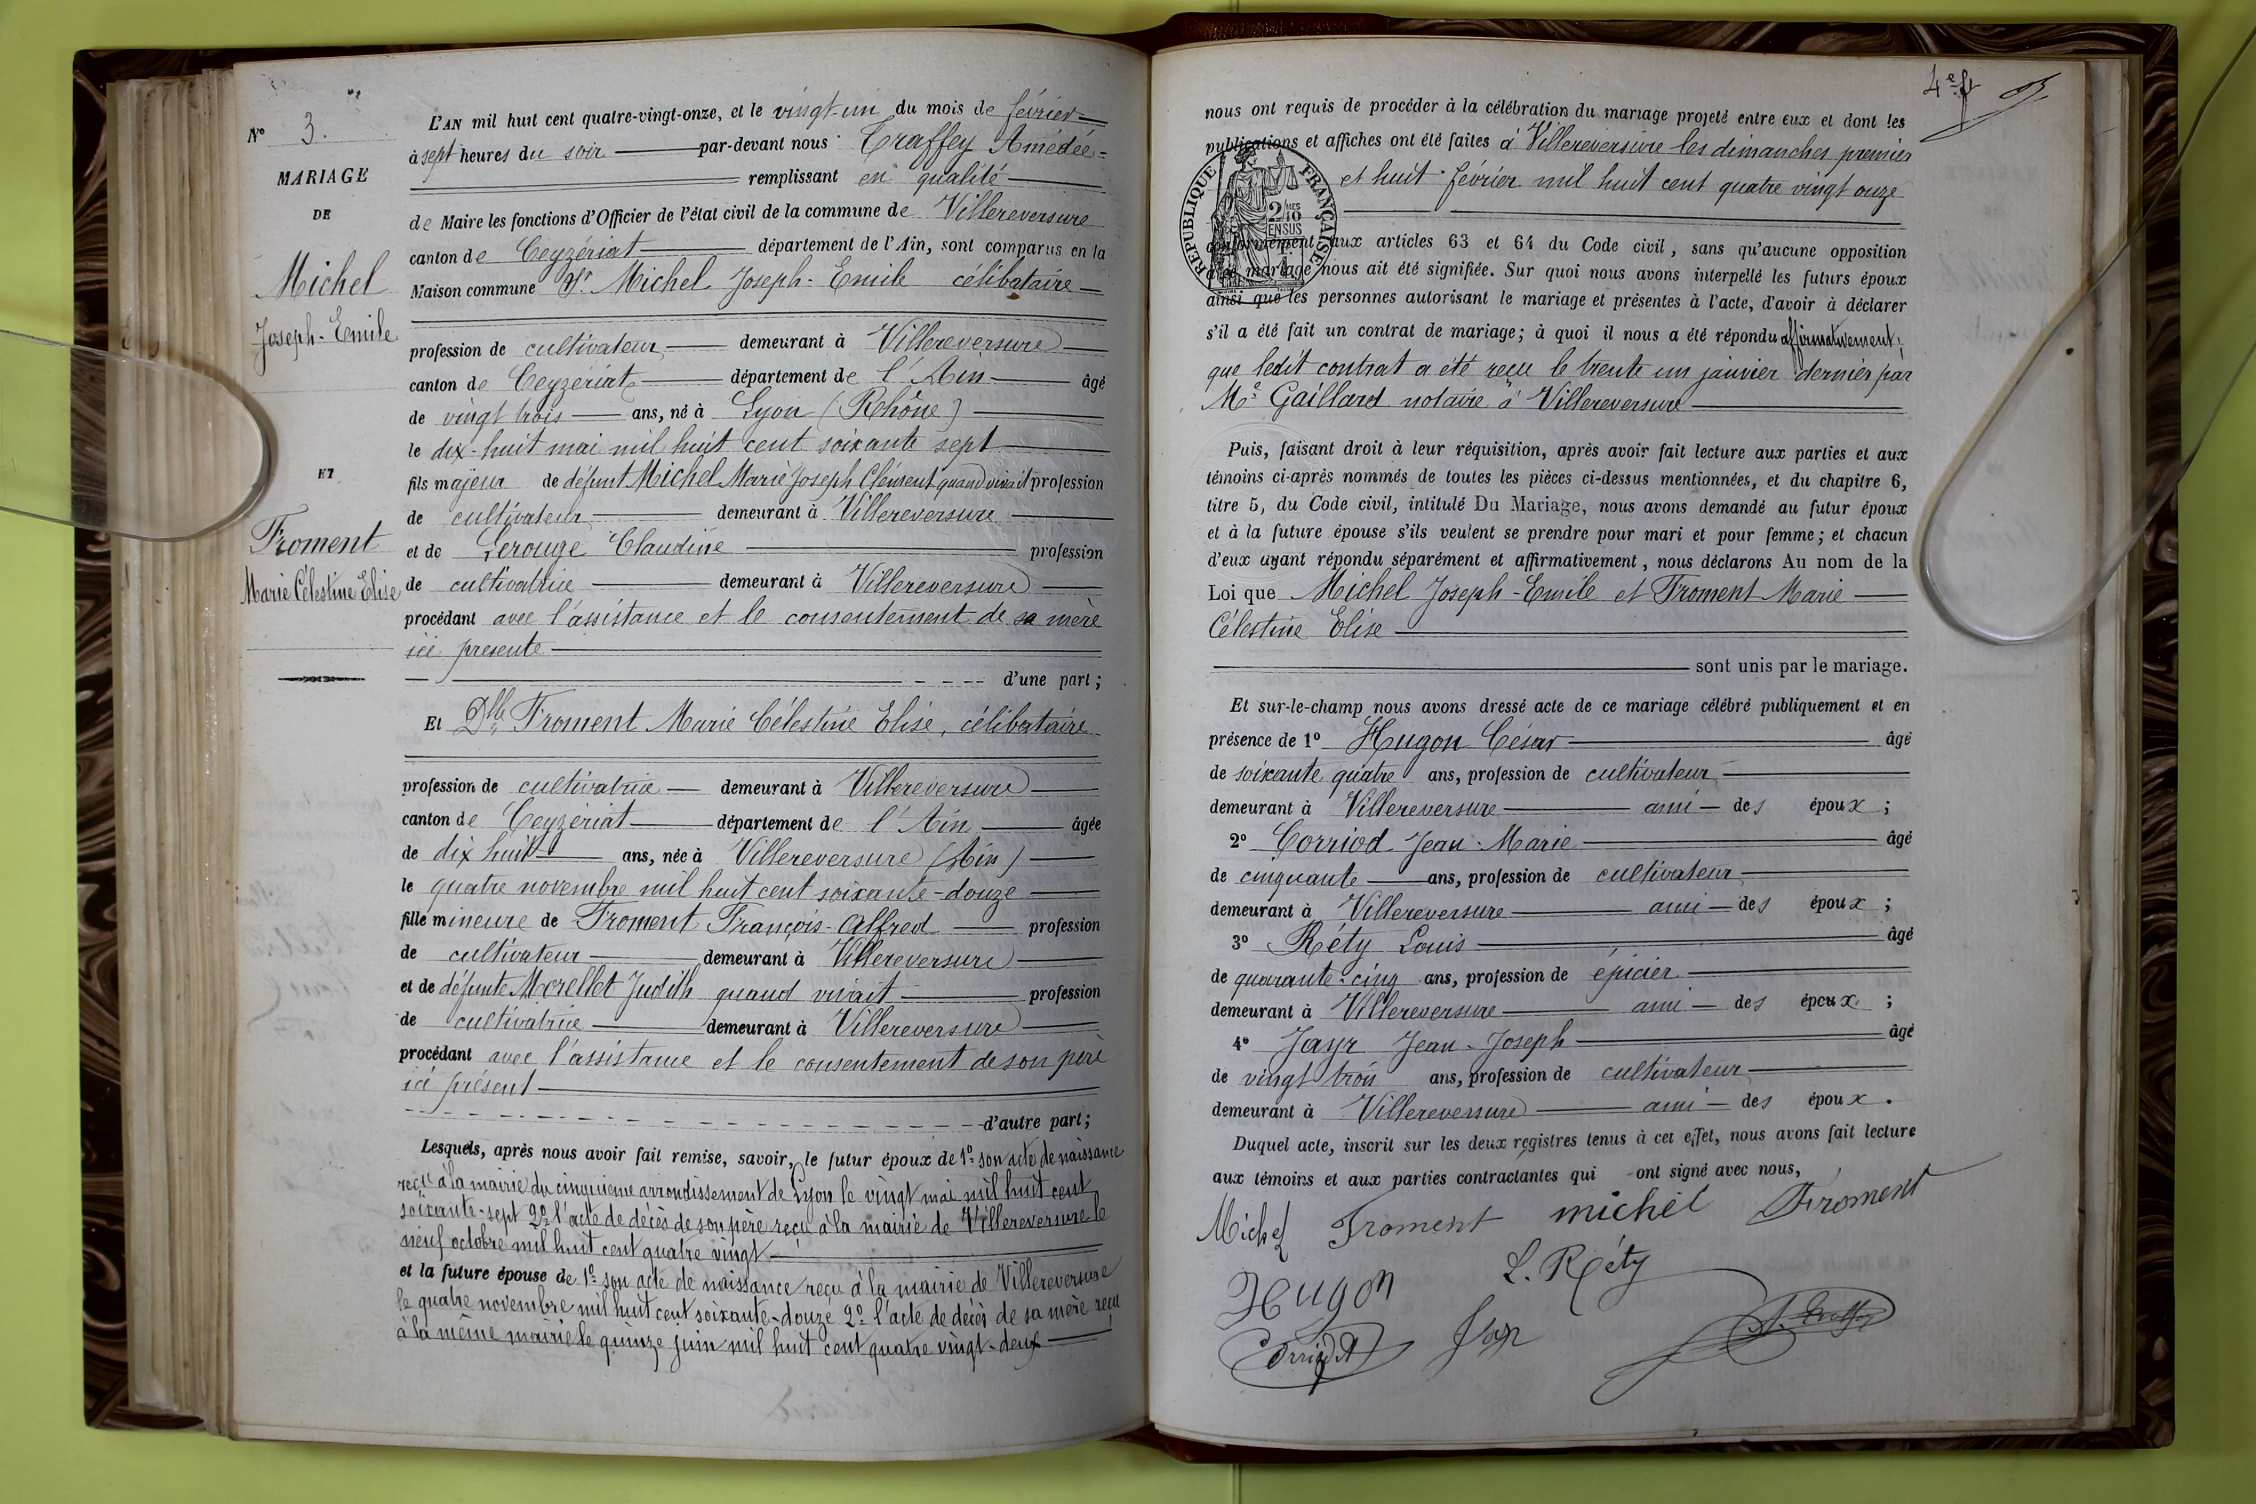 N° 3.
MARIAGE
DE
Michel
Joseph-Emile
ET
Froment
Marie Célestine Elise
L'AN mil huit cent quatre-vingt-onze, et le vingt-un du mois de février
à sept heures du soir par-devant nous Traffey Amédée
remplissant en qualité
de Maire les fonctions d'Officier de l'état civil de la commune de Villereversure
canton de Ceyzériat département de l'Ain, sont comparus en la
Maison commune Sr. Michel Joseph-Emile célibataire
profession de cultivateur demeurant à Villereversure
canton de Ceyzériat département de l'Ain âgé
de vingt trois ans, né à Lyon (Rhône)
le dix-huit mai mil huit cent soixante sept
fils majeur de défunt Michel Marie Joseph Clément quand vivait profession
de cultivateur demeurant à Villereversure
et de Lerouge Claudine profession
de cultivatrice demeurant à Villereversure
procédant avec l'assistance et le consentement de sa mère
ici présente
d'une part;
Et Dlle Froment Marie Célestine Elise, célibataire
profession de cultivatrice demeurant à Villereversure
canton de Ceyzériat département de l'Ain âgée
de dix huit ans, née à Villereversure (Ain)
le quatre novembre mil huit cent soixante-douze
fille mineure de Froment François-Alfred profession
de cultivateur demeurant à Villereversure
et de défunte Morellet Judith quand vivait profession
de cultivatrice demeurant à Villereversure
procédant avec l'assistance et le consentement de son père
ici présent
d'autre part;
Lesquels, après nous avoir fait remise, savoir, le futur époux de 1° son acte de naissance
reçu à la mairie du cinquième arrondissement de Lyon le vingt mai mil huit cent
soixante-sept 2° l'acte de décès de son père reçu à la mairie de Villereversure le
neuf octobre mil huit cent quatre vingt
et la future épouse de 1° son acte de naissance reçu à la mairie de Villereversure
le quatre novembre mil huit cent soixante-douze 2° l'acte de décès de sa mère reçu
à la même mairie le quinze juin mil huit cent quatre vingt-deux
4e ft
nous ont requis de procéder à la célébration du mariage projeté entre eux et dont les
publications et affiches ont été faites à Villereversure les dimanches premier
et huit février mil huit cent quatre vingt onze
RÉPUBLIQUE FRANÇAISE
2/10 MES
EN SUS
conformément aux articles 63 et 64 du Code civil, sans qu'aucune opposition
à ce mariage nous ait été signifiée. Sur quoi nous avons interpellé les futurs époux
ainsi que les personnes autorisant le mariage et présentes à l'acte, d'avoir à déclarer
s'il a été fait un contrat de mariage; à quoi il nous a été répondu affirmativement;
que ledit contrat a été reçu le trente un janvier dernier par
Me Gaillard notaire à Villereversure
Puis, faisant droit à leur réquisition, après avoir fait lecture aux parties et aux
témoins ci-après nommés de toutes les pièces ci-dessus mentionnées, et du chapitre 6,
titre 5, du Code civil, intitulé Du Mariage, nous avons demandé au futur époux
et à la future épouse s'ils veulent se prendre pour mari et pour femme; et chacun
d'eux ayant répondu séparément et affirmativement, nous déclarons Au nom de la
Loi que Michel Joseph-Emile et Froment Marie
Célestine Elise
sont unis par le mariage.
Et sur-le-champ nous avons dressé acte de ce mariage célébré publiquement et en
présence de 1° Hugon César âgé
de soixante quatre ans, profession de cultivateur
demeurant à Villereversure ami des époux;
2° Corriod Jean-Marie âgé
de cinquante ans, profession de cultivateur
demeurant à Villereversure ami des époux;
3° Réty Louis âgé
de quarante-cinq ans, profession de épicier
demeurant à Villereversure ami des époux;
4° Jayr Jean-Joseph âgé
de vingt trois ans, profession de cultivateur
demeurant à Villereversure ami des époux.
Duquel acte, inscrit sur les deux registres tenus à cet effet, nous avons fait lecture
aux témoins et aux parties contractantes qui ont signé avec nous,
Michel Froment michel Froment
Hugon L. Réty
Corriod Jayr